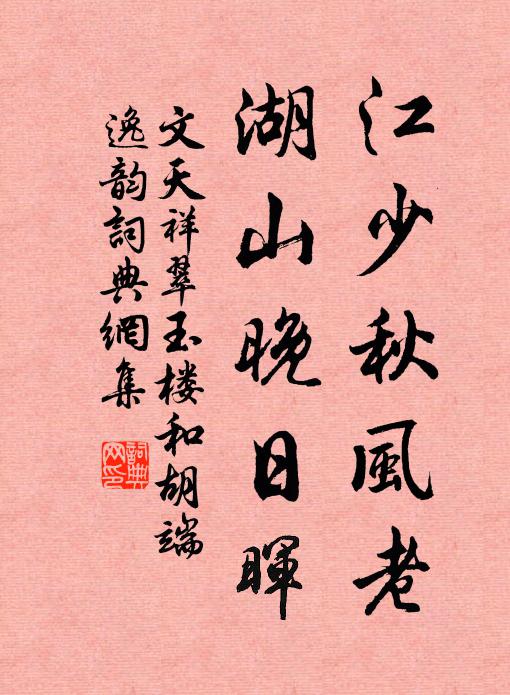 江少秋風老
湖山晚日暉
文天祥翠玉楼和胡端
逸韵詞典網集
詞典网印